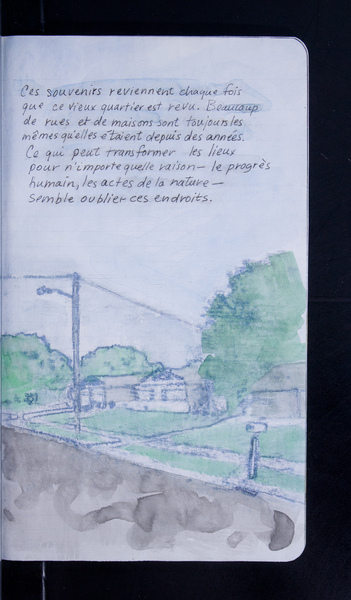 Ces souvenirs reviennent chaque fois
que ce vieux quartier est revu. Beaucoup
de rues et de maisons sont toujours les
mêmes qu'elles étaient depuis des années.
Ce qui peut transformer les lieux
pour n'importe quelle raison — le progrès
humain, les actes de la nature —
semble oublier ces endroits.